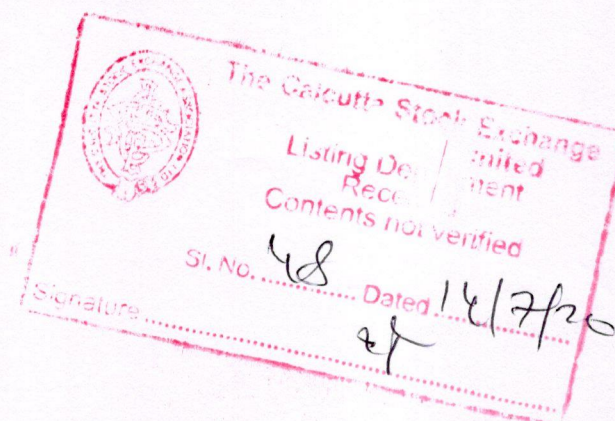 The Calcutta Stock Exchange
Limited
Listing Department
Received
Contents not verified
Sl. No. 48 Dated 14/7/20
Signature